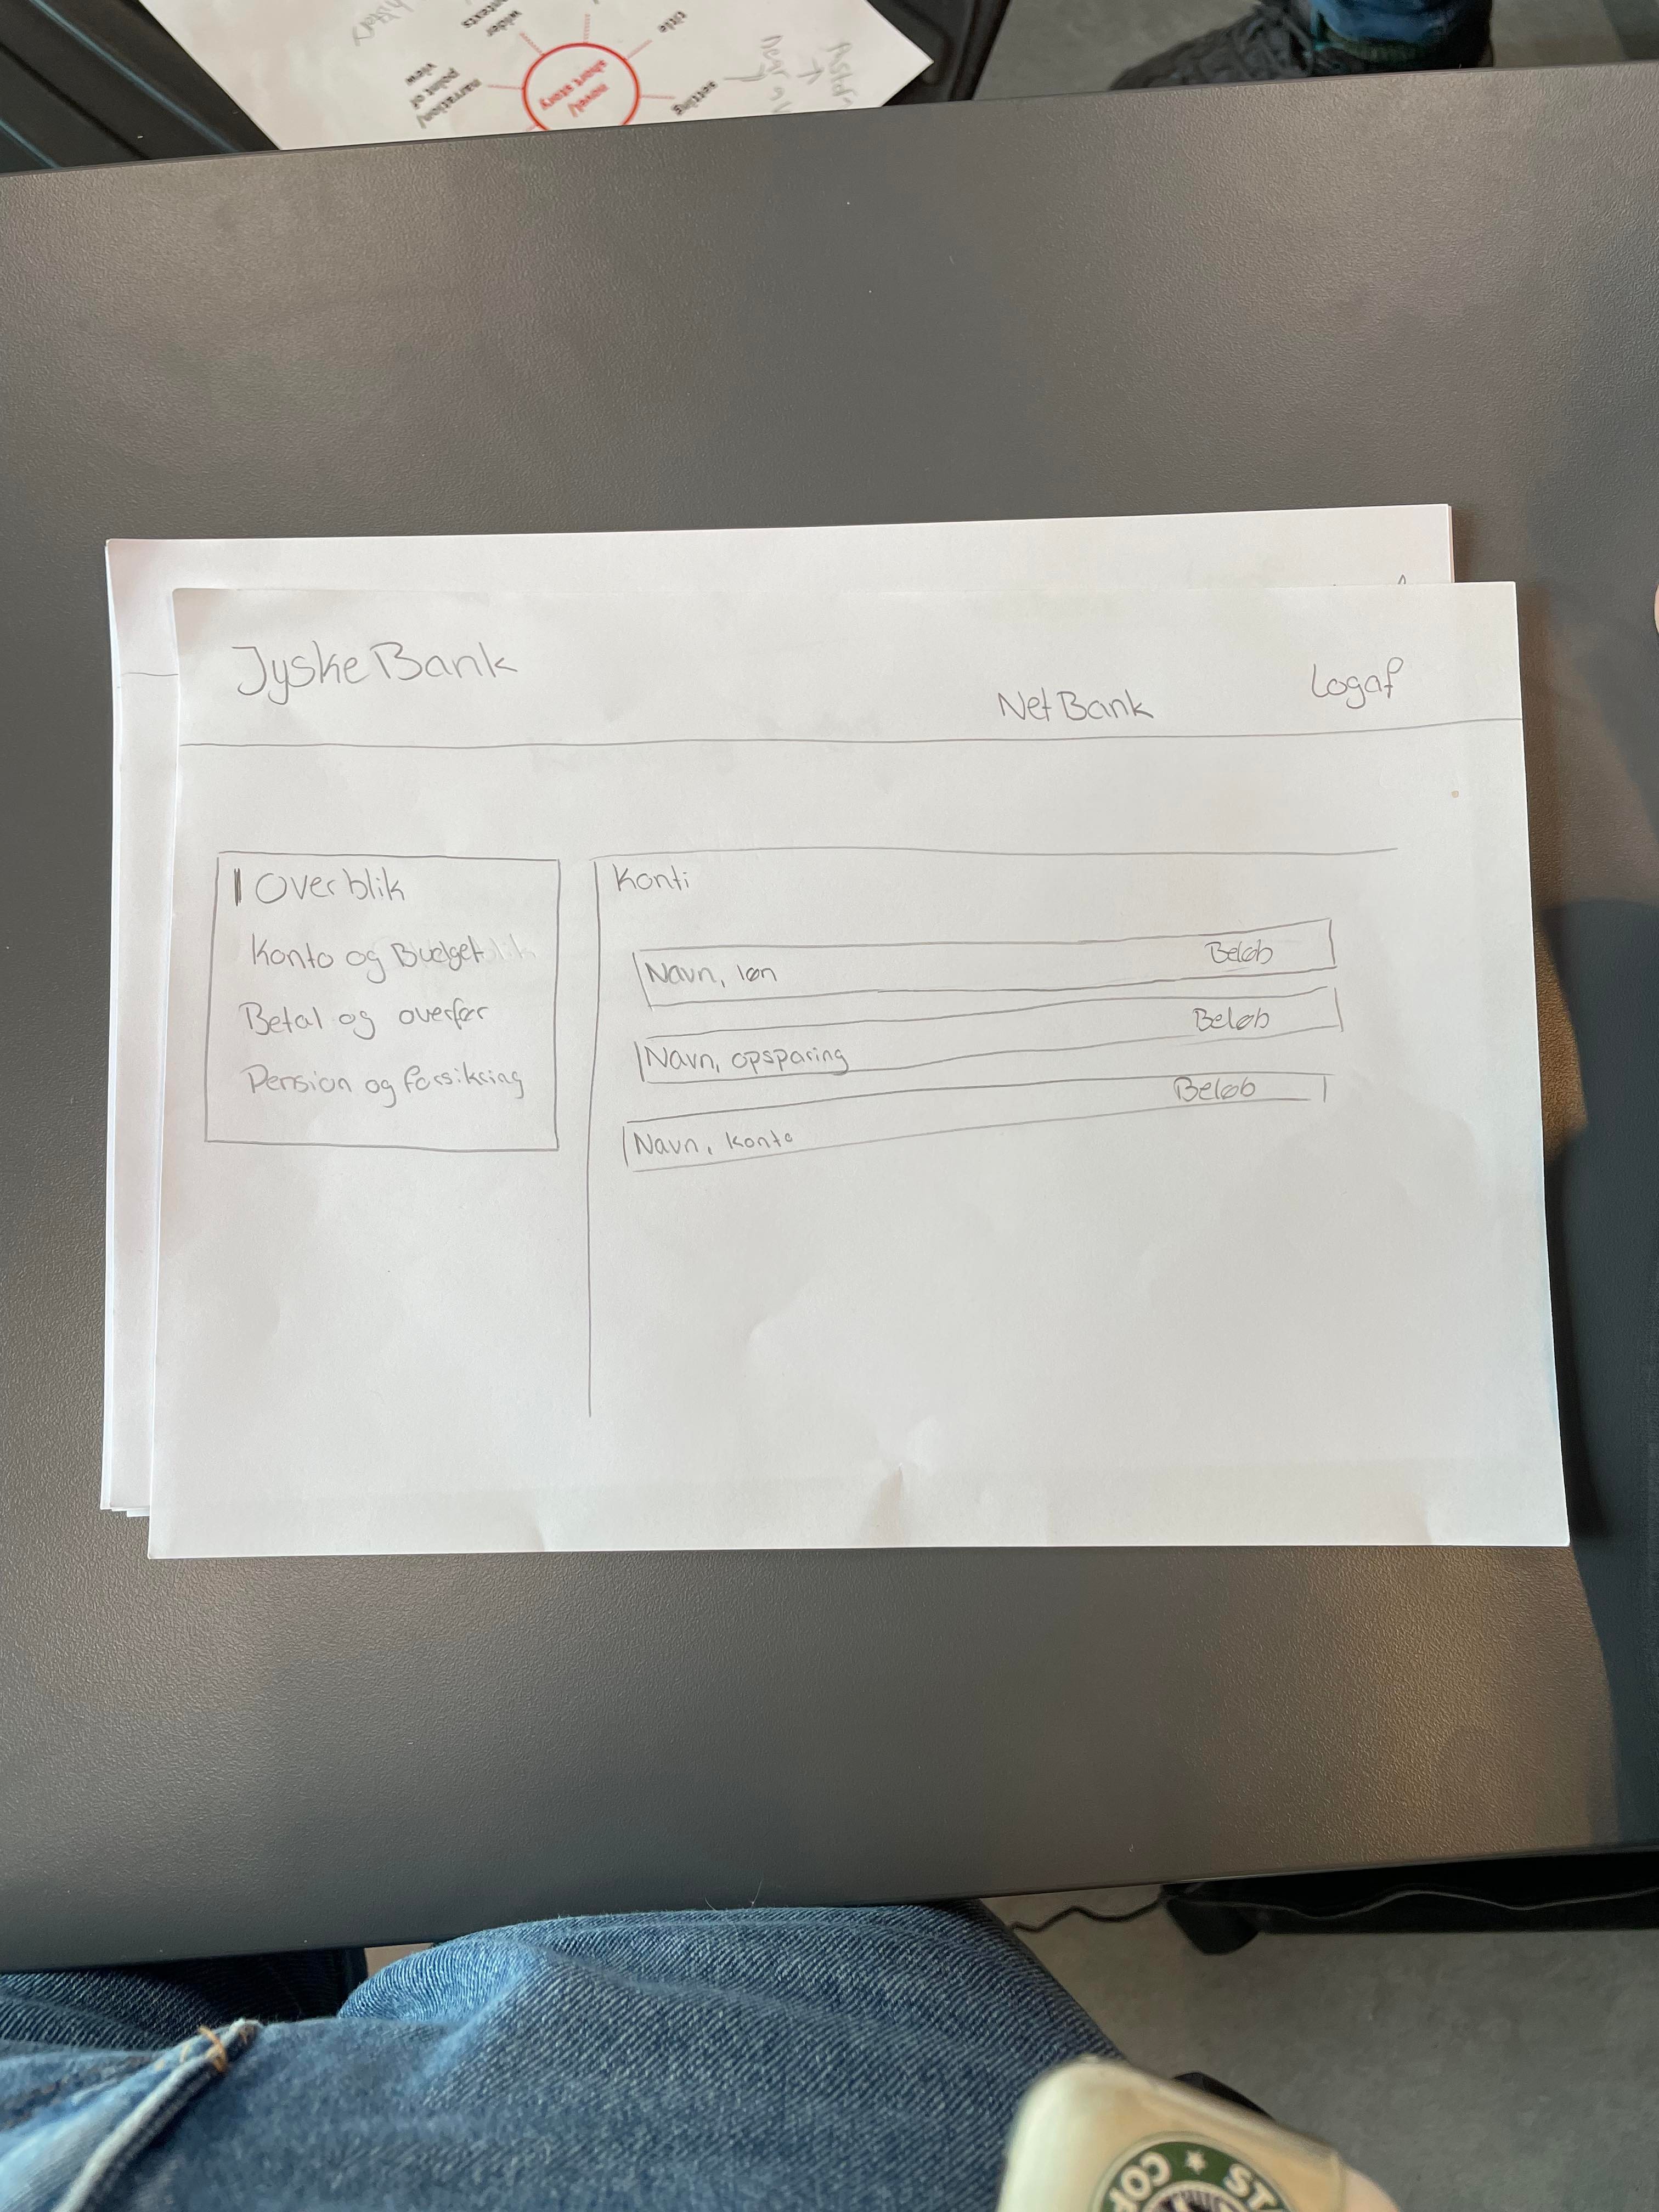 wider
contexts
title
narration/
point of
view
novel/
short story
setting
Jyske Bank
Net Bank
Logaf
Overblik
Konto og Budget
Betal og overfør
Pension og forsikring
Konti
Navn, løn
Beløb
Navn, opsparing
Beløb
Navn, konto
Beløb